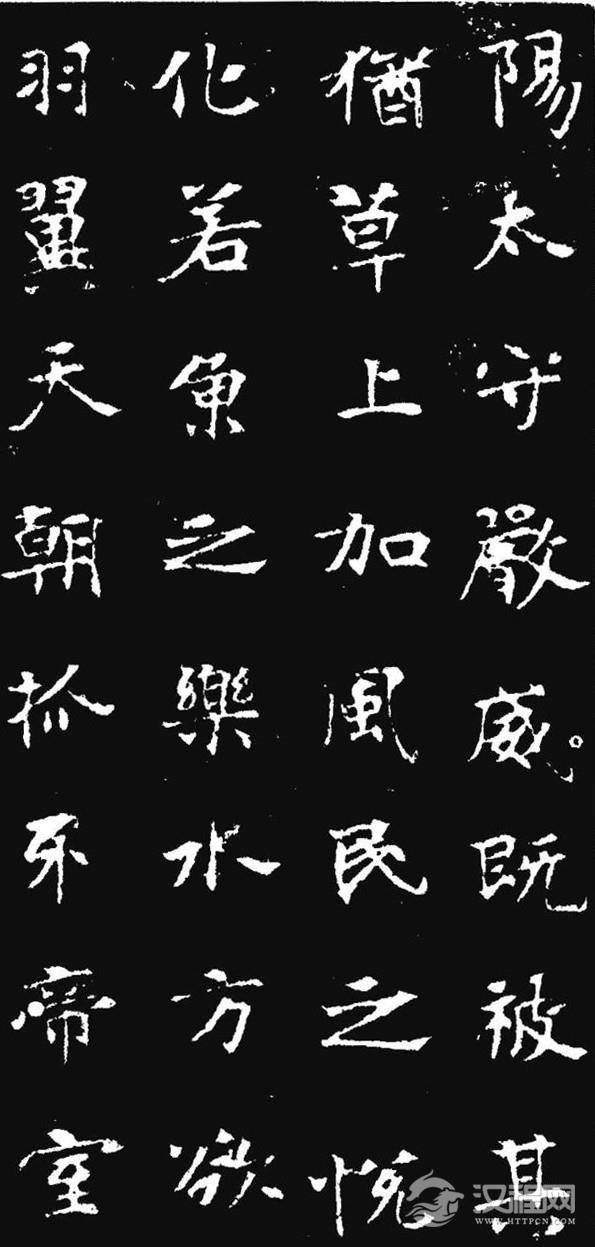 陽太守嚴威既被其
猶草上加風民之悅
化若魚之樂水方欲
羽翼天朝抓牙帝室
汉程网
WWW.HTTPCN.COM